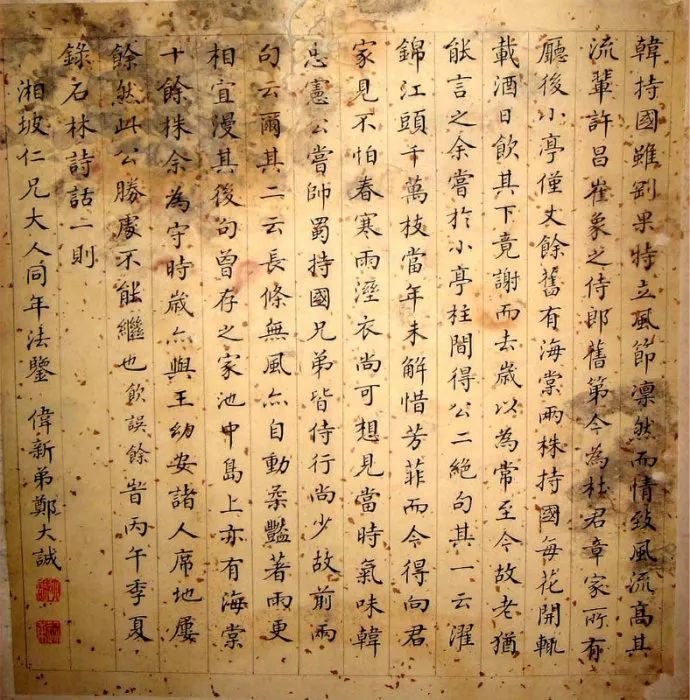 韓持國雖剛果特立風節凛然而情致風流高其
流輩許昌崔象之侍郎舊第今為杜君章家所有
廳後小亭僅丈餘舊有海棠兩株持國每花開輒
載酒日飲其下竟謝而去歲以為常至今故老猶
能言之余嘗於小亭柱間得公二絕句其一云濯
錦江頭千萬枝當年未解惜芳菲而今得向君
家見不怕春寒雨溼衣尚可想見當時氣味韓
忠憲公嘗帥蜀持國兄弟皆侍行尚少故前兩
句云爾其二云長條無風亦自動柔豔著雨更
相宜漫其後句曾存之家池中島上亦有海棠
十餘株余為守時歲亦與王幼安諸人席地屢
餘然此公勝處不能繼也飲誤餘 旹丙午季夏
錄石林詩話二則
湘玻仁兄大人同年法鑒 偉新弟鄭大誠